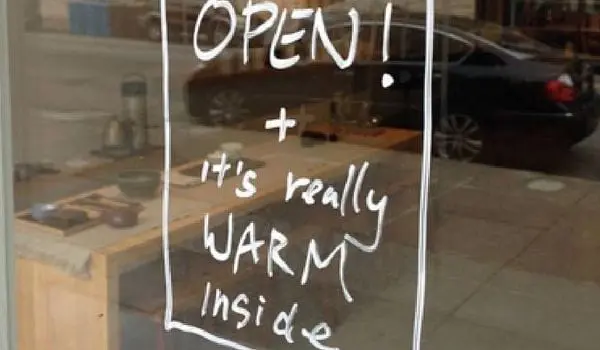 OPEN!
+
it's really
WARM
inside